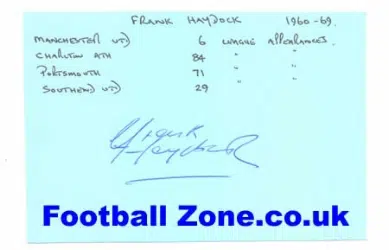 FRANK HAYDOCK 1960-69.
MANCHESTER UTD 6 LEAGUE APPEARANCES.
CHARLTON ATH 84 " "
PORTSMOUTH 71 " "
SOUTHEND UTD 29 " "
Frank
Haydock
Football Zone.co.uk